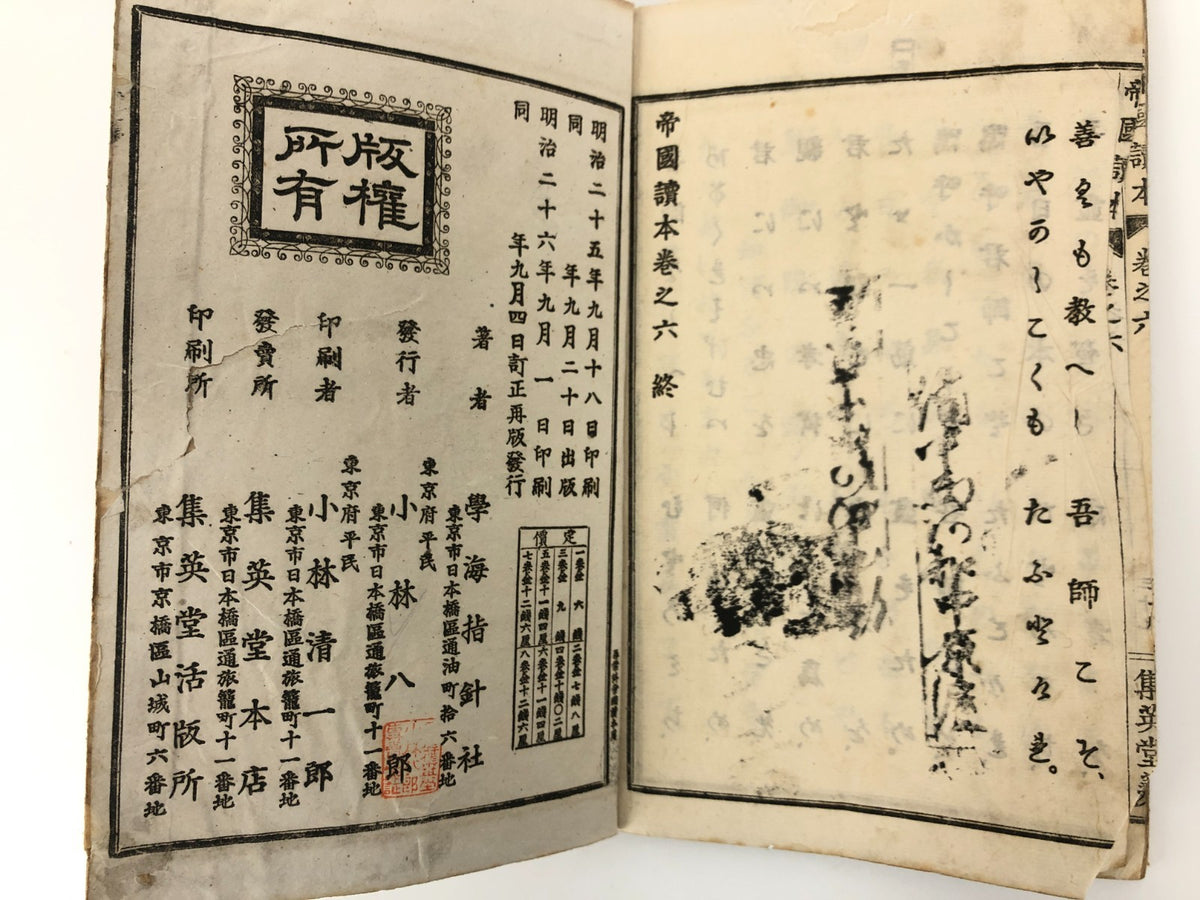 帝國讀本
卷之六
善きも教へし吾師こそ、
いやのこくもたふとけれ。
帝國讀本卷之六 終
集英堂
版權所有
明治二十五年九月十八日印刷
同 年九月二十日出版
明治二十六年九月一日印刷
同 年九月四日訂正再版發行
定價
一卷金六錢
二卷金七錢八厘
三卷金九錢
四卷金十錢〇二厘
五卷金十一錢四厘
六卷金十一錢四厘
七卷金十二錢六厘
八卷金十二錢六厘
著者
學海指針社
東京市日本橋區通油町拾六番地
東京府平民
發行者
小林八郎
東京市日本橋區通旅籠町十一番地
東京府平民
印刷者
小林清一郎
東京市日本橋區通旅籠町十一番地
發賣所
集英堂本店
東京市日本橋區通旅籠町十一番地
印刷所
集英堂活版所
東京市京橋區山城町六番地